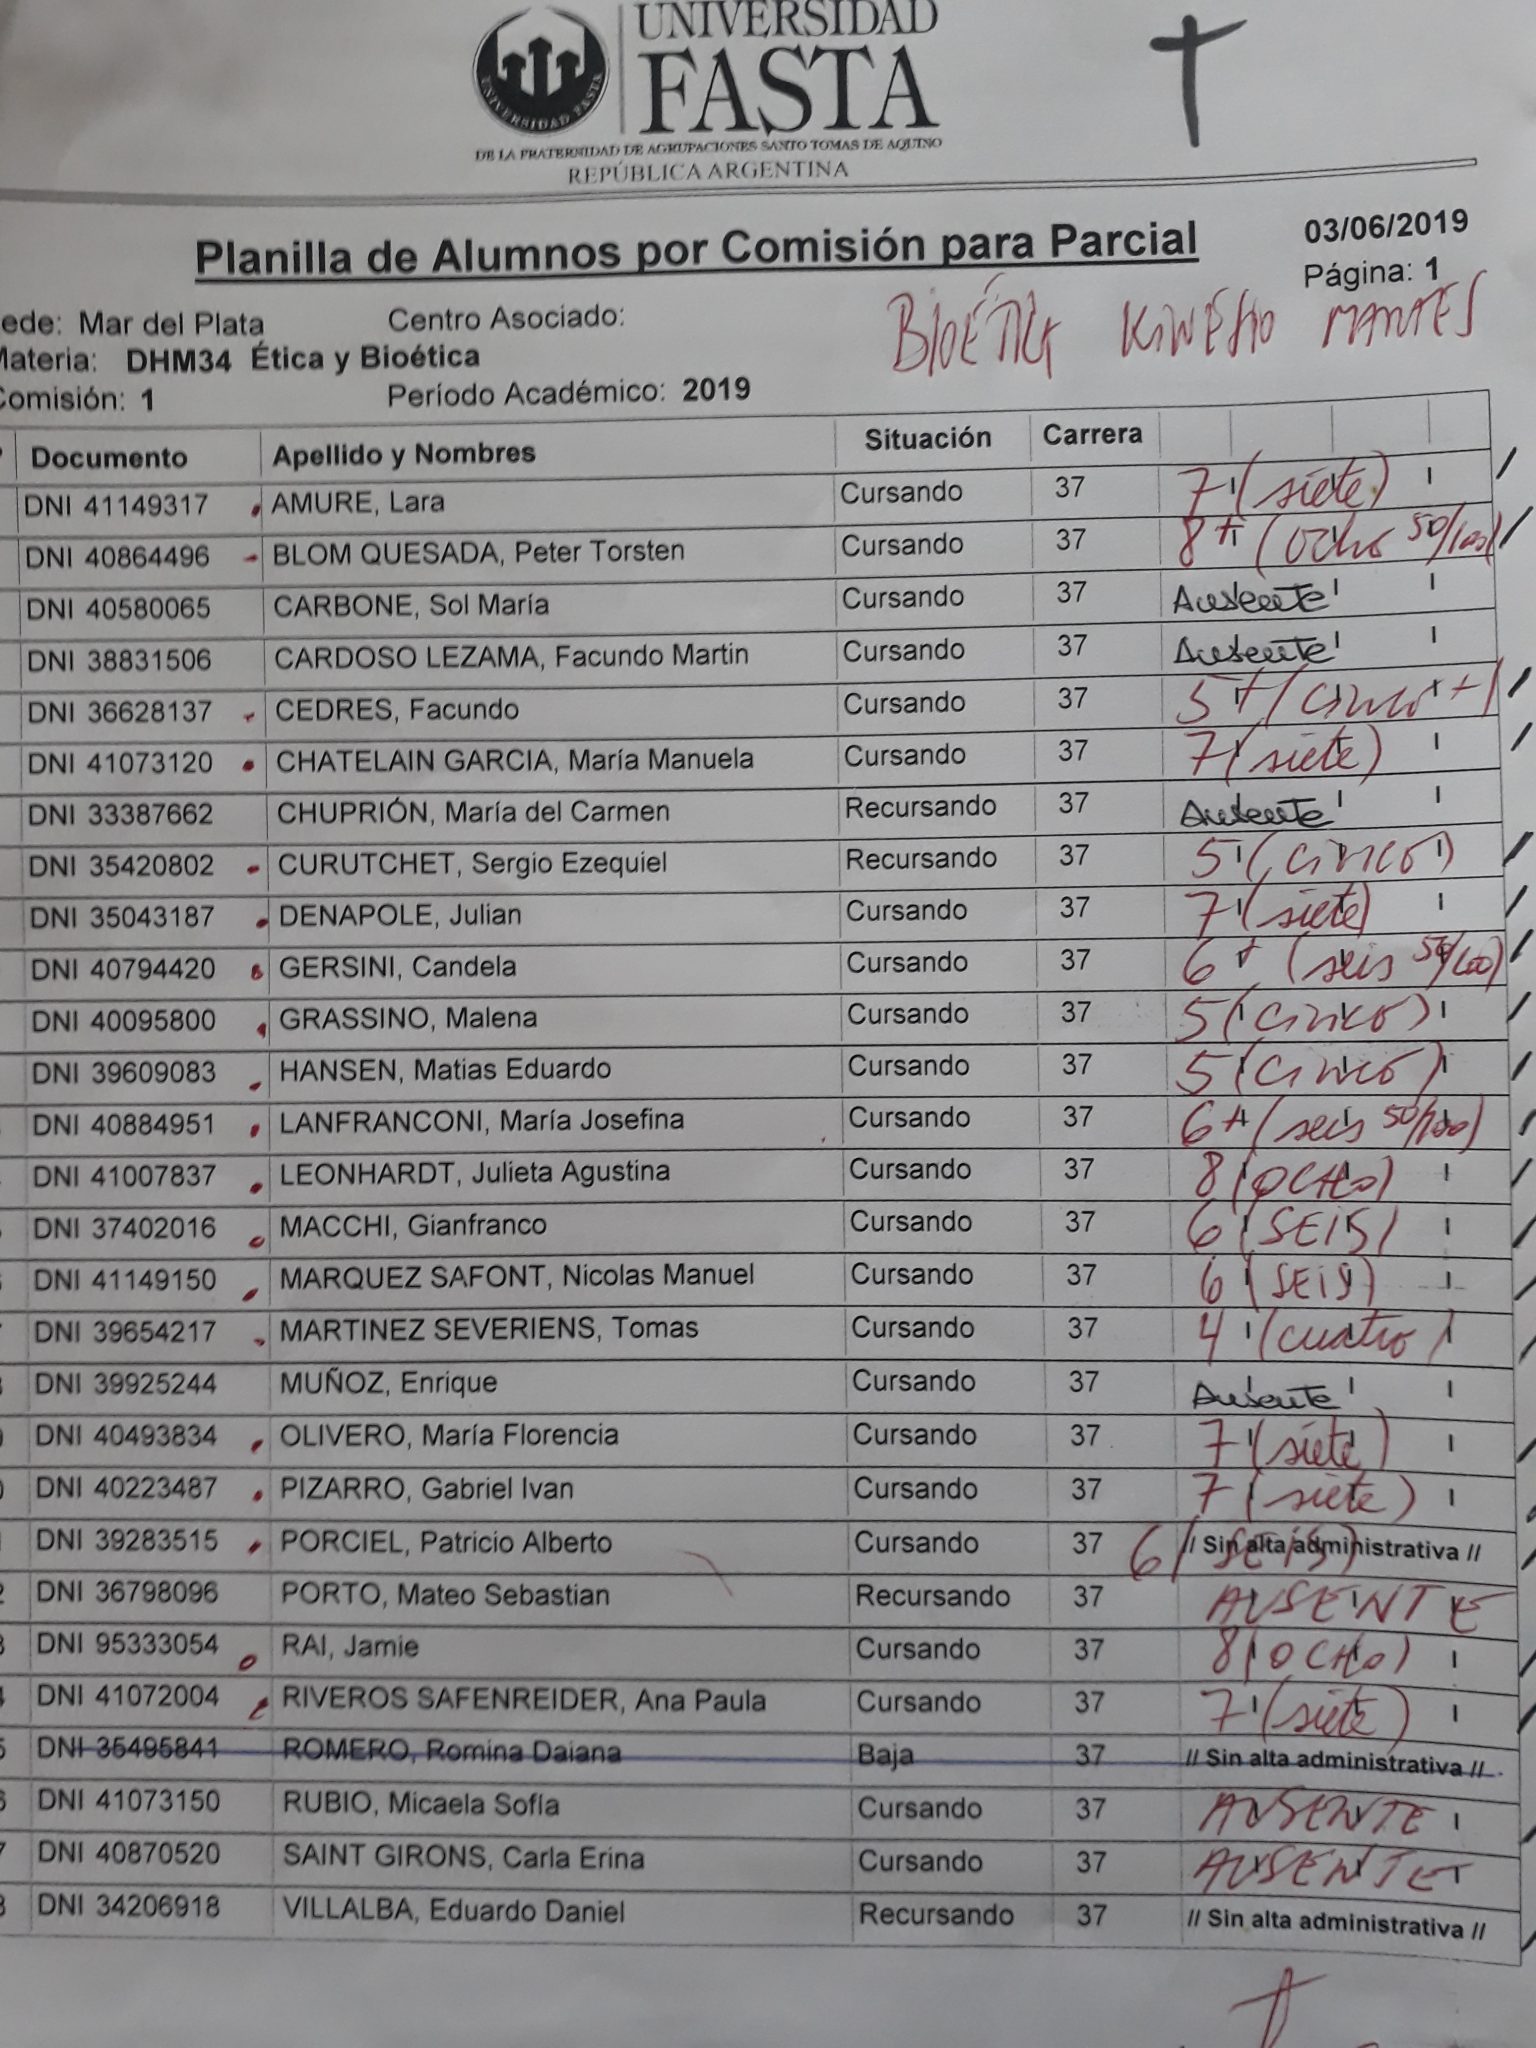 UNIVERSIDAD
FASTA
UNIVERSIDAD FASTA
DE LA FRATERNIDAD DE AGRUPACIONES SANTO TOMAS DE AQUINO
REPÚBLICA ARGENTINA
Planilla de Alumnos por Comisión para Parcial 03/06/2019
Página: 1
ede: Mar del Plata Centro Asociado:
BIOÉTICA KINESIO MARTES
Materia: DHM34 Ética y Bioética
Comisión: 1 Período Académico: 2019
Documento Apellido y Nombres Situación Carrera
DNI 41149317 AMURE, Lara Cursando 37 7 (siete)
DNI 40864496 BLOM QUESADA, Peter Torsten Cursando 37 8+ (ocho 50/100)
DNI 40580065 CARBONE, Sol María Cursando 37 Ausente
DNI 38831506 CARDOSO LEZAMA, Facundo Martin Cursando 37 Ausente
DNI 36628137 CEDRES, Facundo Cursando 37 5+ (cinco +)
DNI 41073120 CHATELAIN GARCIA, María Manuela Cursando 37 7 (siete)
DNI 33387662 CHUPRIÓN, María del Carmen Recursando 37 Ausente
DNI 35420802 CURUTCHET, Sergio Ezequiel Recursando 37 5 (cinco)
DNI 35043187 DENAPOLE, Julian Cursando 37 7 (siete)
DNI 40794420 GERSINI, Candela Cursando 37 6+ (seis 50/100)
DNI 40095800 GRASSINO, Malena Cursando 37 5 (cinco)
DNI 39609083 HANSEN, Matias Eduardo Cursando 37 5 (cinco)
DNI 40884951 LANFRANCONI, María Josefina Cursando 37 6+ (seis 50/100)
DNI 41007837 LEONHARDT, Julieta Agustina Cursando 37 8 (OCHO)
DNI 37402016 MACCHI, Gianfranco Cursando 37 6 (SEIS)
DNI 41149150 MARQUEZ SAFONT, Nicolas Manuel Cursando 37 6 (SEIS)
DNI 39654217 MARTINEZ SEVERIENS, Tomas Cursando 37 4 (cuatro)
DNI 39925244 MUÑOZ, Enrique Cursando 37 Ausente
DNI 40493834 OLIVERO, María Florencia Cursando 37 7 (siete)
DNI 40223487 PIZARRO, Gabriel Ivan Cursando 37 7 (siete)
DNI 39283515 PORCIEL, Patricio Alberto Cursando 37 6 (SEIS) // Sin alta administrativa //
DNI 36798096 PORTO, Mateo Sebastian Recursando 37 AUSENTE
DNI 95333054 RAI, Jamie Cursando 37 8 (OCHO)
DNI 41072004 RIVEROS SAFENREIDER, Ana Paula Cursando 37 7 (siete)
DNI 35495841 ROMERO, Romina Daiana Baja 37 // Sin alta administrativa //
DNI 41073150 RUBIO, Micaela Sofía Cursando 37 AUSENTE
DNI 40870520 SAINT GIRONS, Carla Erina Cursando 37 AUSENTE
DNI 34206918 VILLALBA, Eduardo Daniel Recursando 37 // Sin alta administrativa //